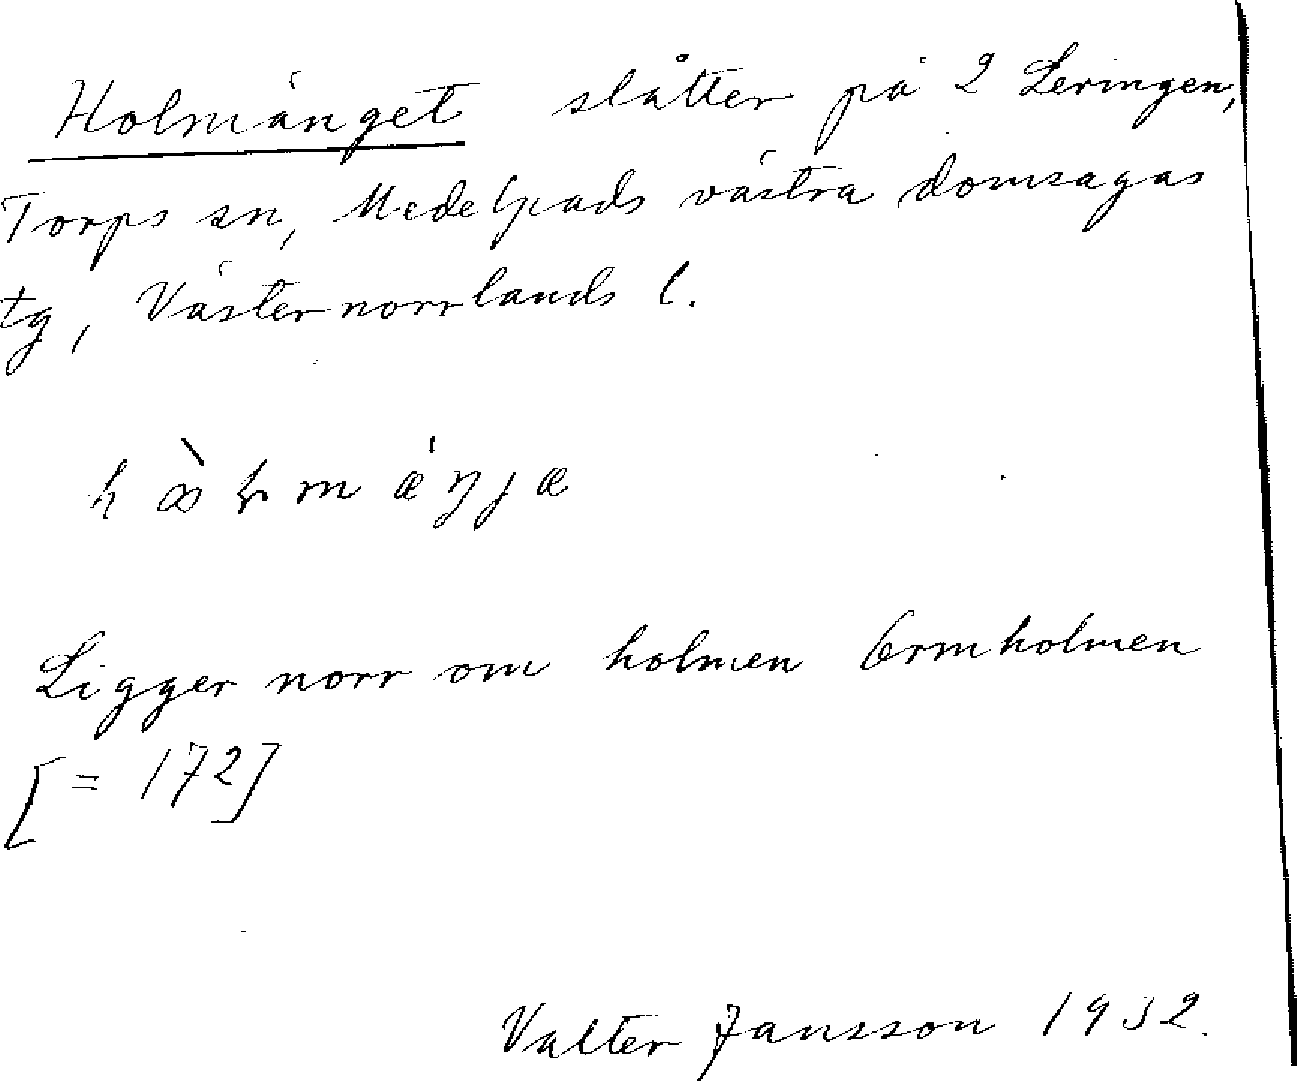 Holmänget slåtter på 2 Leringen,
Torps sn, Medelpads västra domsagas
tg, Västernorrlands l.
Ligger norr om holmen Ormholmen
[= 172]
Valter Jansson 1932.